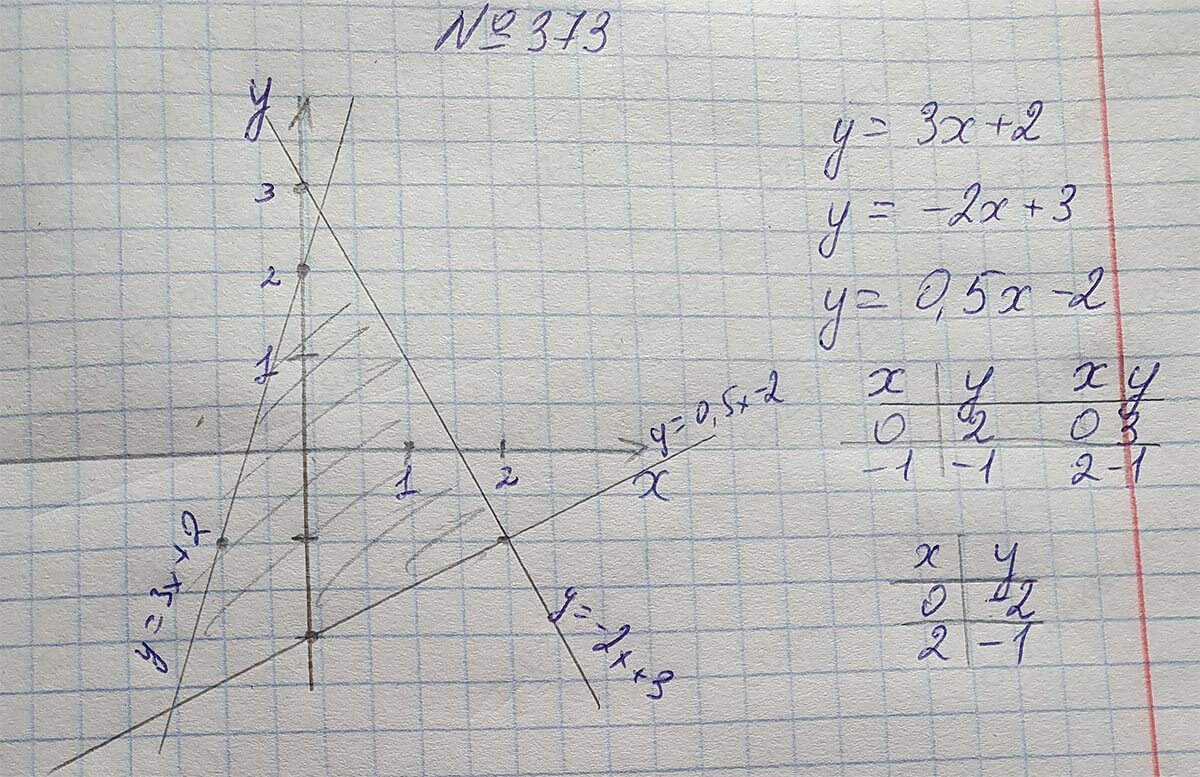 № 373
y
3
2
1
1
2
x
y=0,5x-2
y=3x+2
y=-2x+3
y= 3x+2
y= -2x+3
y= 0,5x-2
x y x y
0 2 0 3
-1 -1 2 -1
x y
0 -2
2 -1